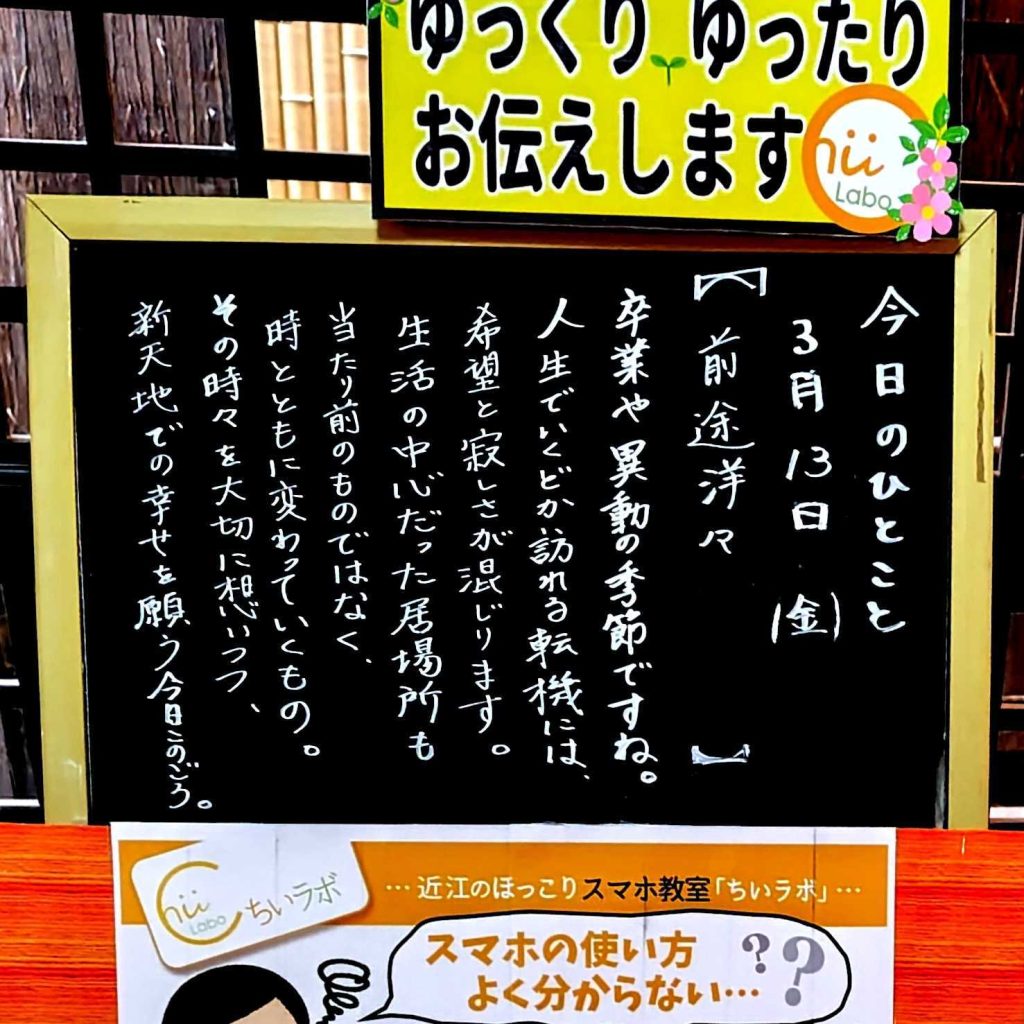 ゆっくり ゆったり
お伝えします
Chii
Labo
今日のひとこと
3月13日(金)
【前途洋々】
卒業や異動の季節ですね。
人生でいくどか訪れる転機には、
希望と寂しさが混じります。
生活の中心だった居場所も
当たり前のものではなく、
時とともに変わっていくもの。
その時々を大切に想いつつ、
新天地での幸せを願う今日このごろ。
Chii
Labo
ちいラボ
…近江のほっこりスマホ教室「ちいラボ」…
スマホの使い方
よく分からない…??